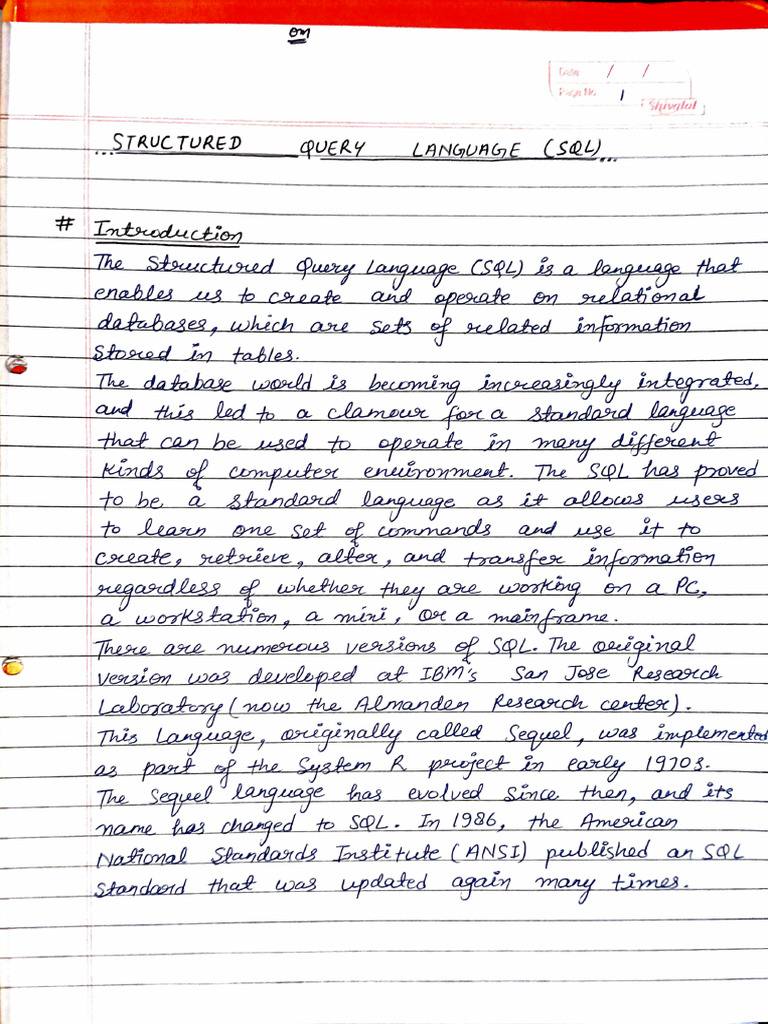 Date / /
Page No. 1
Shivalal
...STRUCTURED QUERY LANGUAGE (SQL)...
# Introduction
The Structured Query Language (SQL) is a language that
enables us to create and operate on relational
databases, which are sets of related information
stored in tables.
The database world is becoming increasingly integrated,
and this led to a clamour for a standard language
that can be used to operate in many different
kinds of computer environment. The SQL has proved
to be a standard language as it allows users
to learn one set of commands and use it to
create, retrieve, alter, and transfer information
regardless of whether they are working on a PC,
a workstation, a mini, or a mainframe.
There are numerous versions of SQL. The original
version was developed at IBM's San Jose Research
Laboratory (now the Almanden Research center).
This Language, originally called Sequel, was implemented
as part of the System R project in early 1970s.
The Sequel language has evolved since then, and its
name has changed to SQL. In 1986, the American
National Standards Institute (ANSI) published an SQL
Standard that was updated again many times.